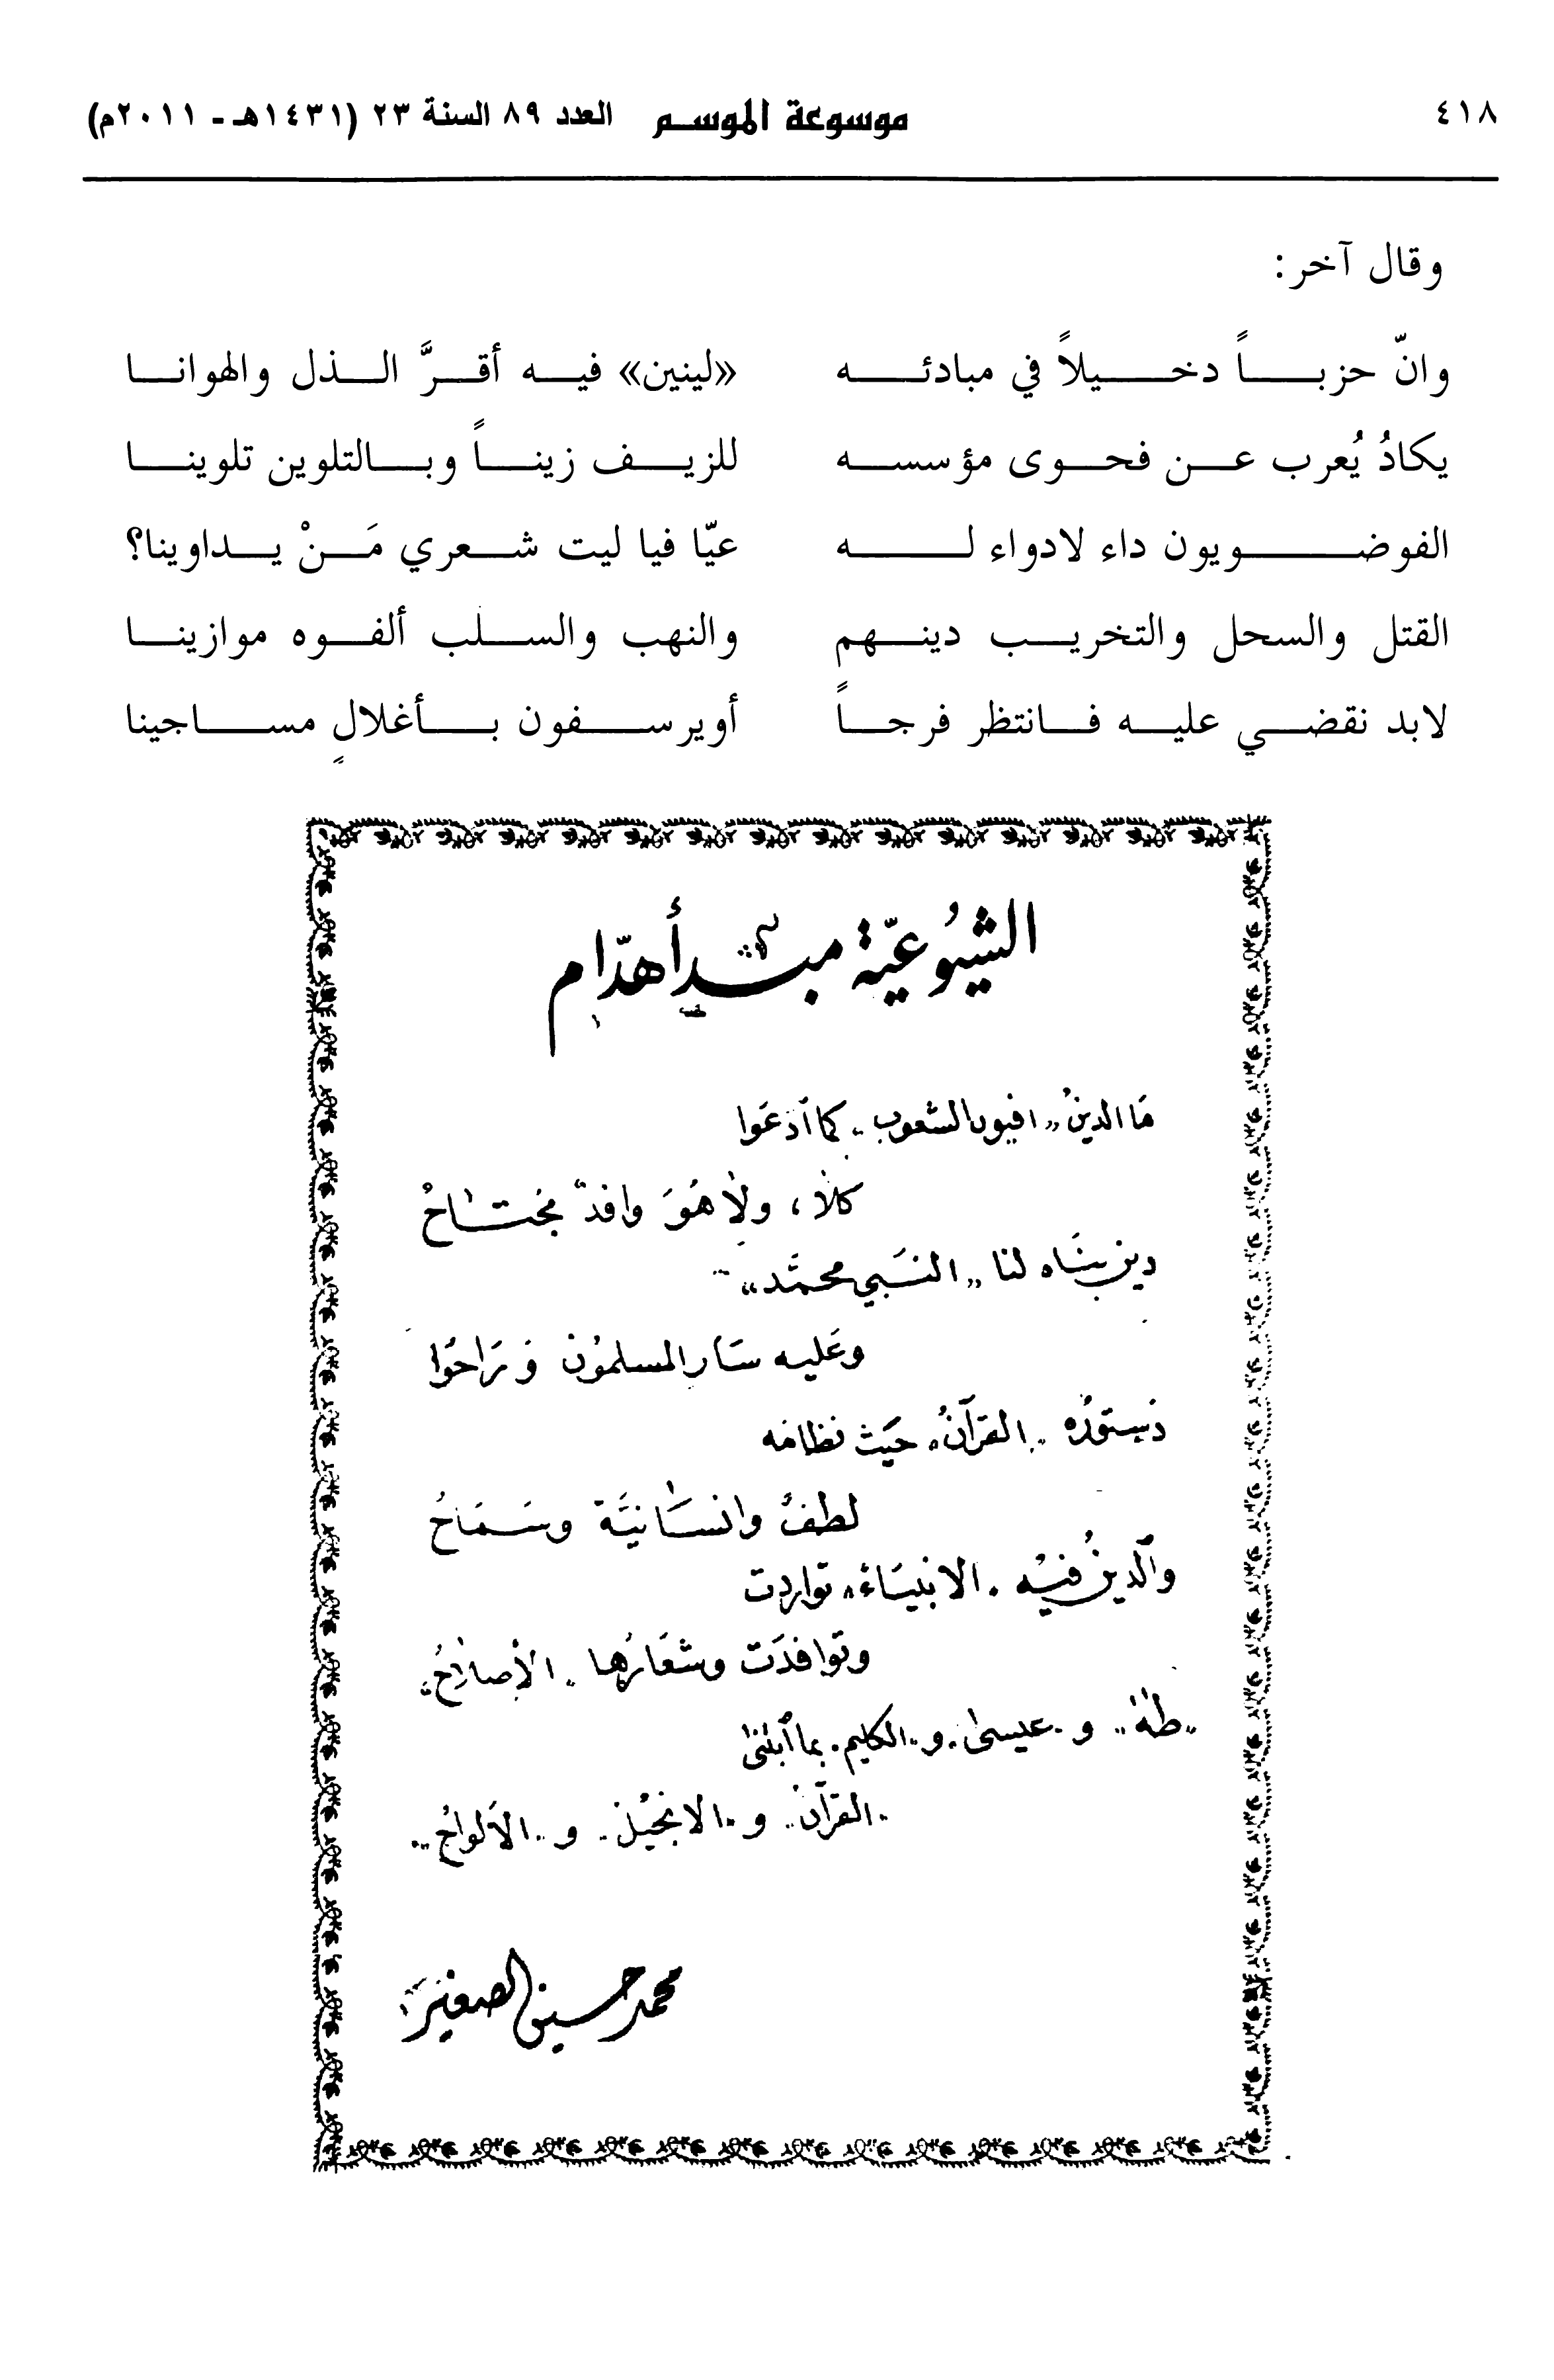 ٤١٨ موسوعة الموسم العدد ٨٩ السنة ٢٣ (١٤٣١هـ - ٢٠١١م)
وقال آخر:
وانّ حزباً دخيلاً في مبادئه «لينين» فيه أقرَّ الذل والهوانا
يكادُ يُعرب عن فحوى مؤسسه للزيف زيناً وبالتلوين تلوينا
الفوضويون داء لادواء له عيّا فيا ليت شعري مَنْ يداوينا؟
القتل والسحل والتخريب دينهم والنهب والسلب ألفوه موازينا
لابد نقضي عليه فانتظر فرجاً أويرسفون بأغلالٍ مساجينا
الشيُوعيّة مبدأ هدّام
مَا الدينُ „افيون الشعوب" كما ٱدعَوا
كلا، ولا هُوَ وافدٌ مجتاحُ
دين بنَاه لنا „النَبي محمَّد"
وعَليه سَار المسلمُون وَرَاحوُا
دُستورُه "القرآنُ" حيَث نظامَه
لطفٌ وانسَانيَّة وسَمَاحُ
وٱلدينُ فيْه "الانبيَاءُ" تواردت
وتوافدَت وشعَارُها "الأصلاحُ"
"طٰهٰ" و"عيسىٰ" و"الكليم" بما ٱبتنىٰ
"القرآنُ" و"الانجيْلُ" و"الاَلواحُ"
محمد حسين الصغير